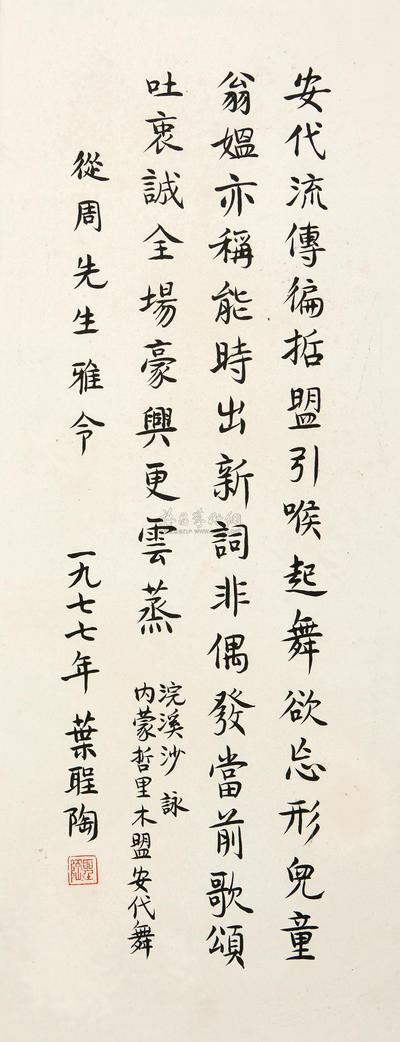 安代流傳徧哲盟引喉起舞欲忘形兒童
翁媼亦稱能時出新詞非偶發當前歌頌
吐衷誠全場豪興更雲蒸
浣溪沙 詠
内蒙哲里木盟安代舞
從周先生雅令
一九七七年 葉聖陶